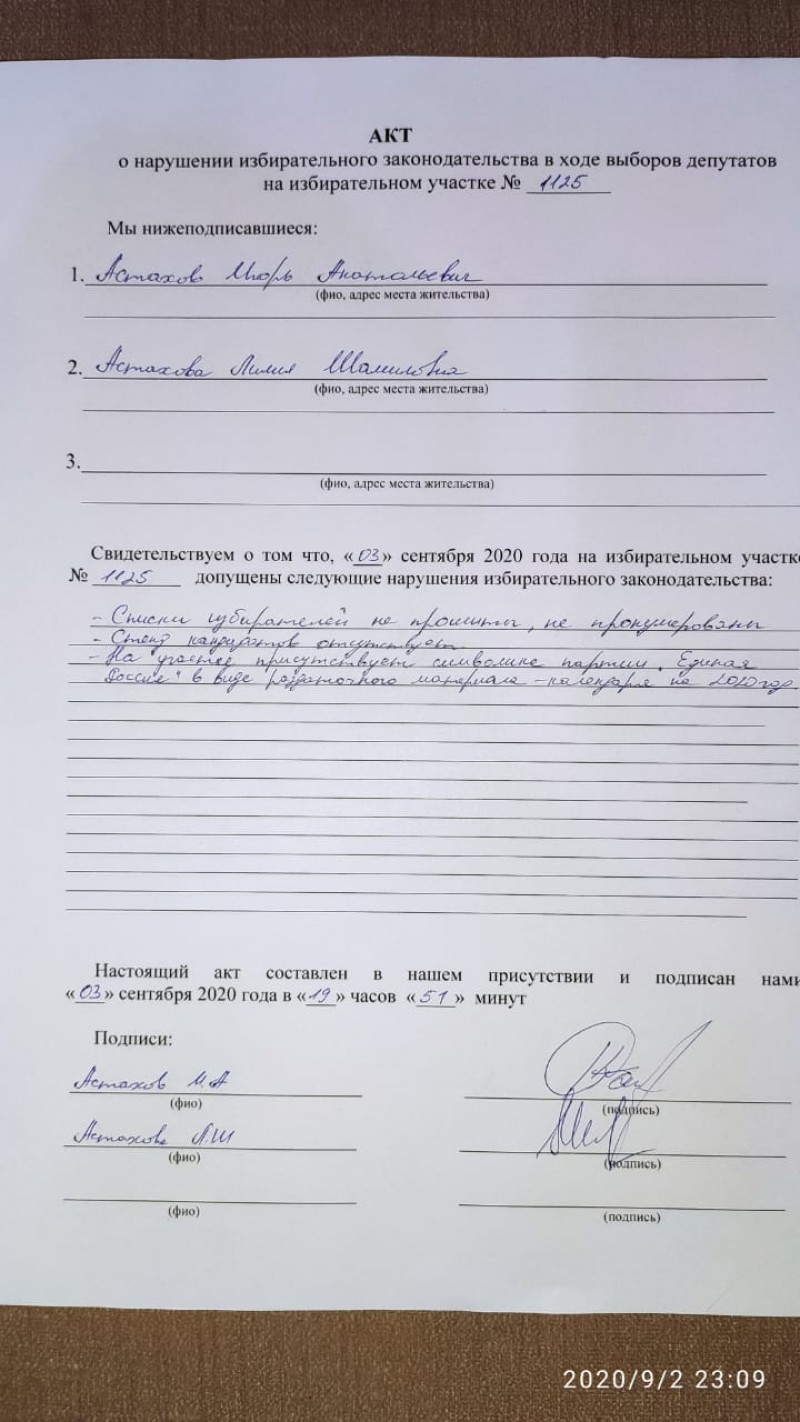 АКТ
о нарушении избирательного законодательства в ходе выборов депутатов
на избирательном участке № 1125
Мы нижеподписавшиеся:
1. Астахов Игорь Анатольевич
(фио, адрес места жительства)
2. Астахова Лилия Шамиловна
(фио, адрес места жительства)
3.
(фио, адрес места жительства)
Свидетельствуем о том что, «03» сентября 2020 года на избирательном участке
№ 1125 допущены следующие нарушения избирательного законодательства:
- Списки избирателей не прошиты, не пронумерованы
- Стенд кандидатов отсутствует
- На участке присутствует символика партии „Единая
Россия" в виде раздаточного материала - календаря на 2020 год
Настоящий акт составлен в нашем присутствии и подписан нами
«03» сентября 2020 года в «19» часов «51» минут
Подписи:
Астахов И.А
(фио) (подпись)
Астахова Л.Ш
(фио) (подпись)
(фио) (подпись)
2020/9/2 23:09